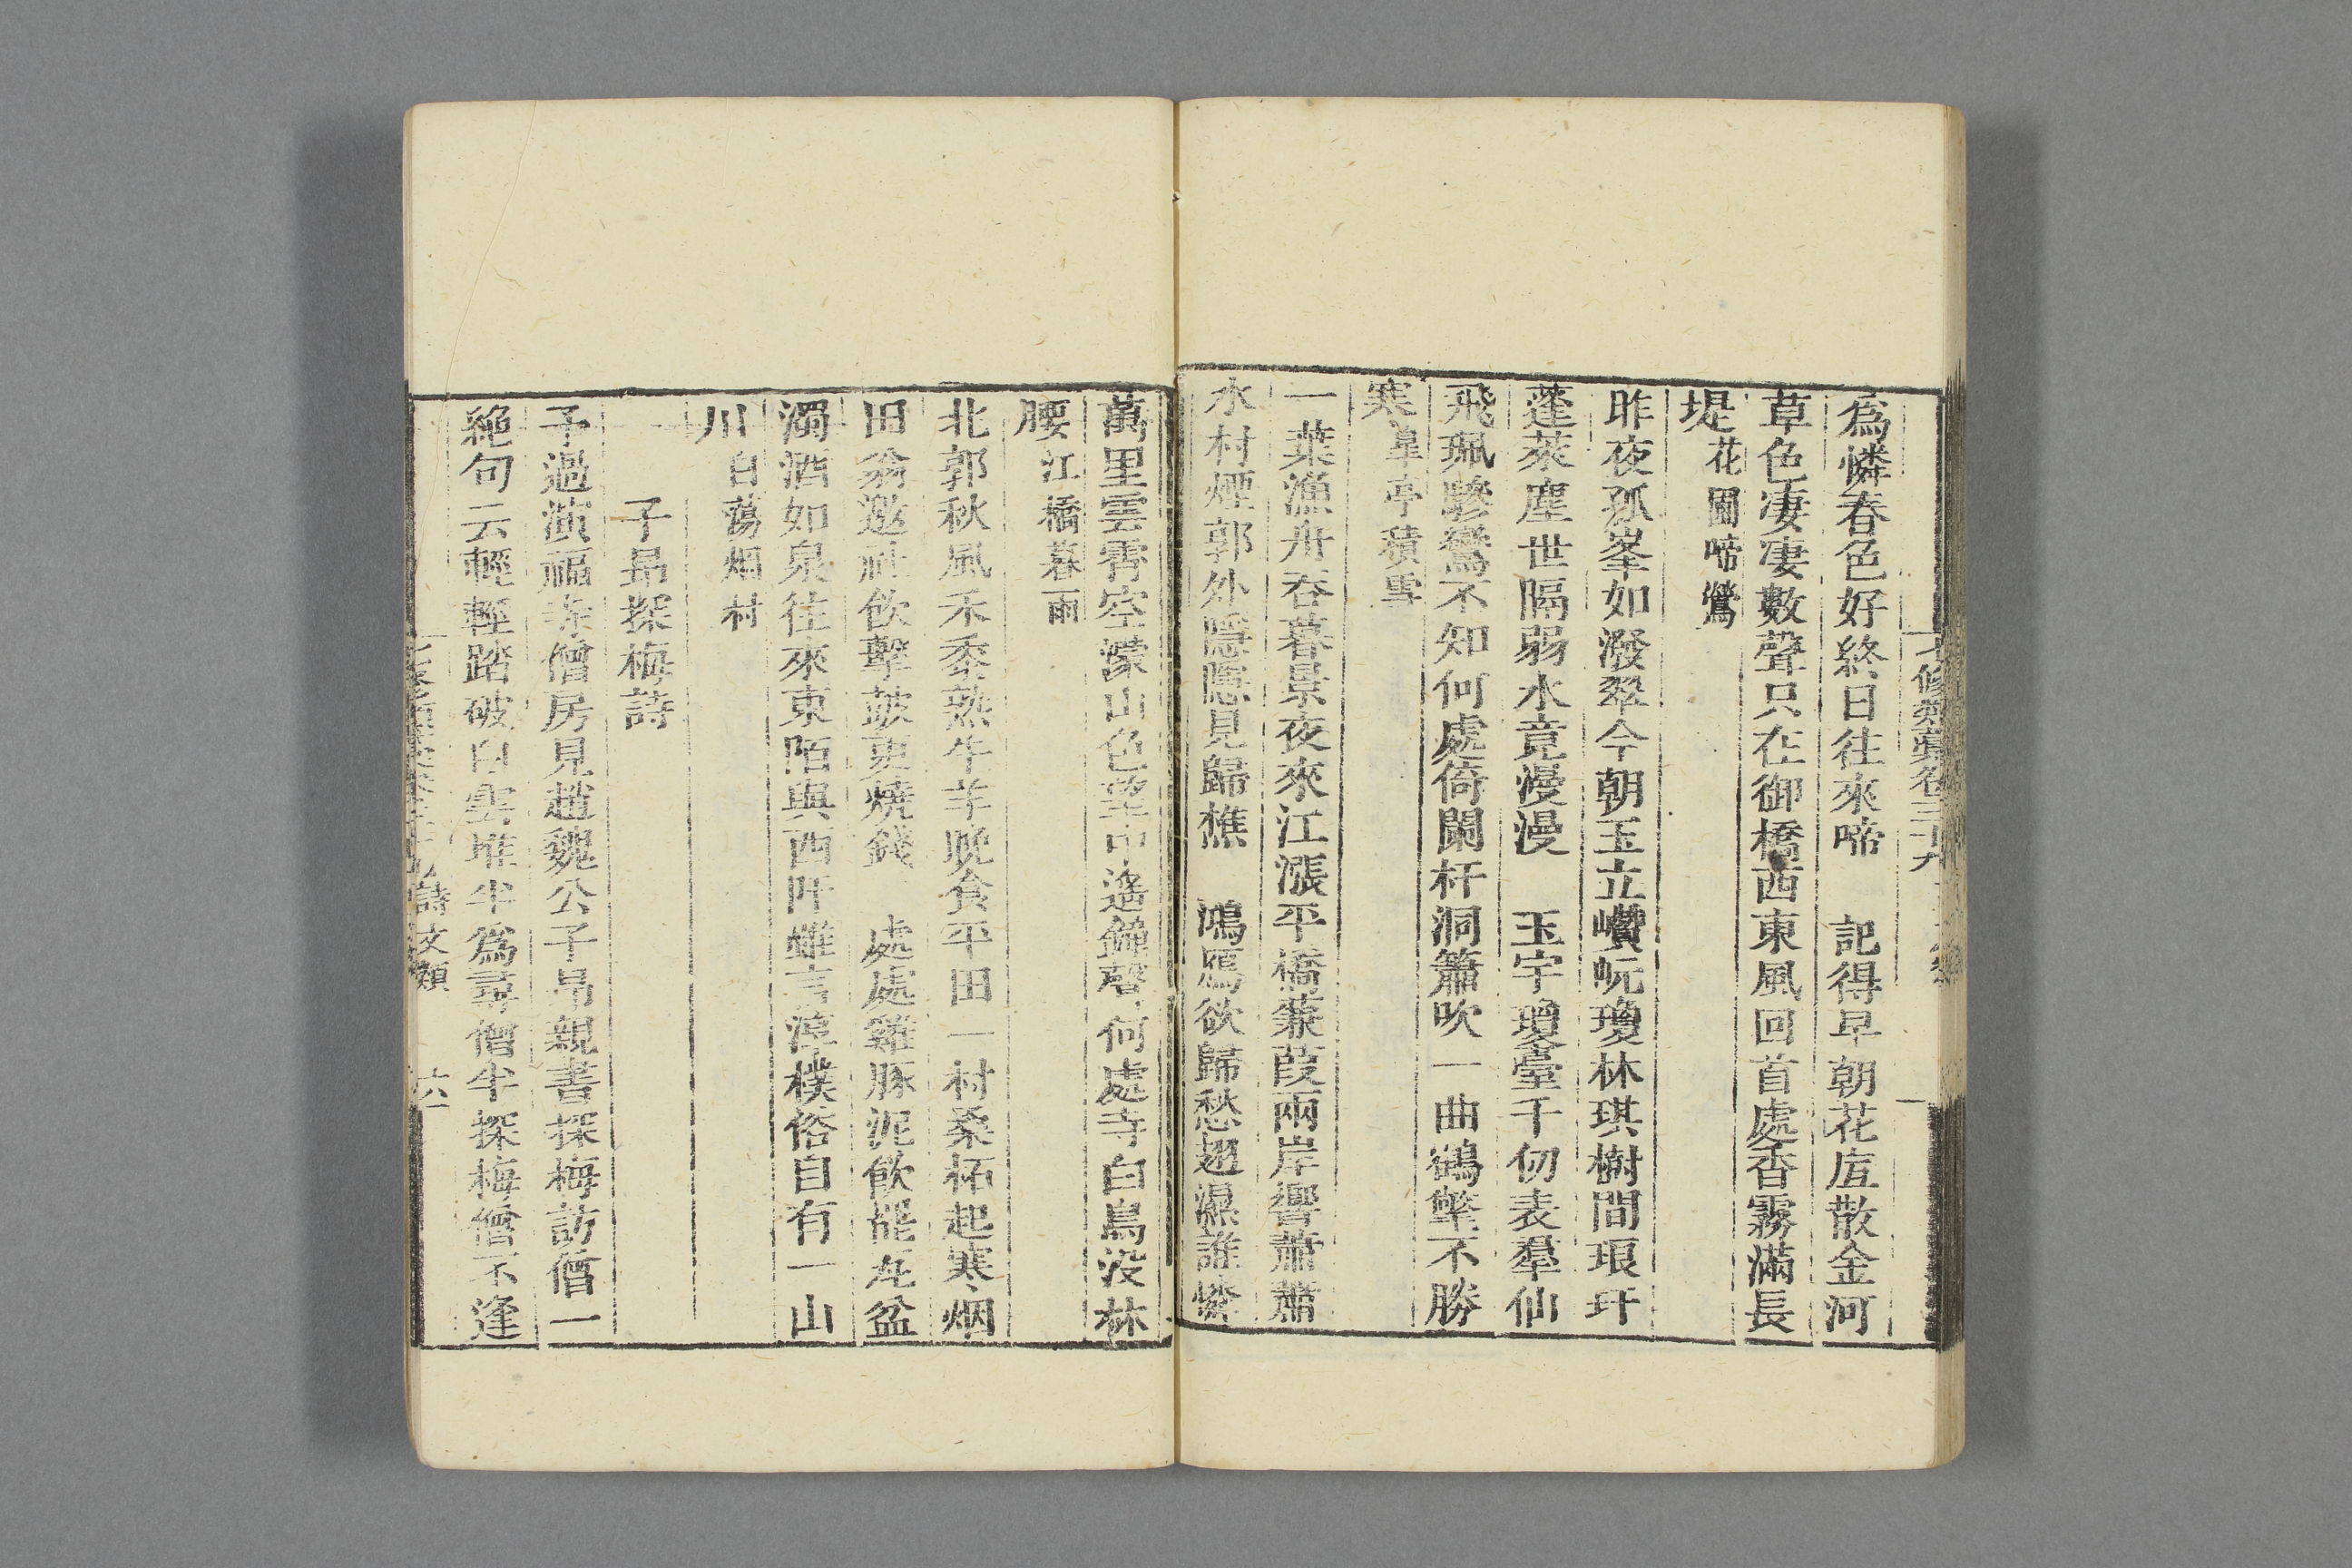 為憐春色好終日往來啼　記得早朝花底散金河
草色凄凄數聲只在御橋西東風回首處香霧滿長
堤花圃啼鶯
昨夜孤峯如潑翠今朝玉立巑岏瓊林琪樹間琅玕
蓬萊塵世隔弱水竟漫漫　玉宇瓊臺千仞表羣仙
飛珮驂鸞不知何處倚闌杆洞簫吹一曲鶴氅不勝
寒臯亭積雪
一葉漁舟吞暮景夜來江漲平橋蒹葭兩岸響蕭蕭
水村煙郭外隱隱見歸樵　鴻鴈欲歸愁翅濕誰憐
萬里雲霄空濛山色望中遙鐘磬何處寺白鳥没林
腰江橋暮雨
北郭秋風禾黍熟牛羊晚食平田一村桑柘起寒烟
田翁邀社飲擊鼓更燒錢　處處雞豚泥飲罷瓦盆
濁酒如泉往來東陌與西阡雖言淳樸俗自有一山
川白蕩烟村
子昻探梅詩
予過演福寺僧房見趙魏公子昻親書探梅訪僧一
絶句云輕輕踏破白雲堆半為尋僧半探梅僧不逢
詩文類
六